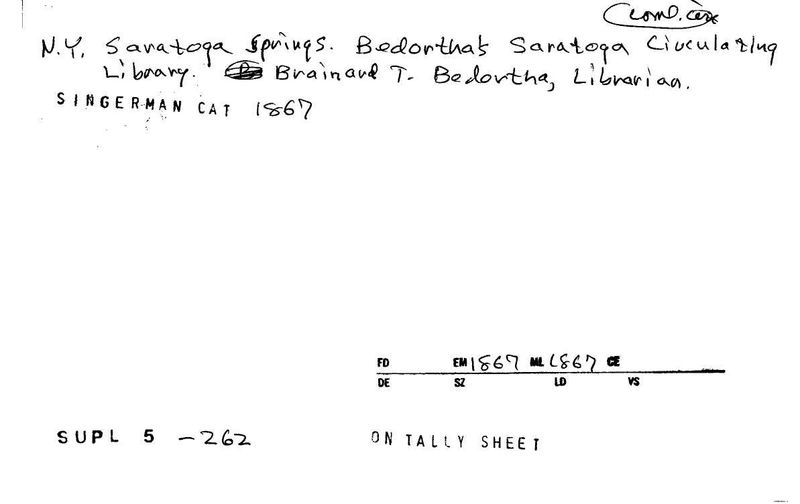 N.Y. Saratoga Springs. Bedortha's Saratoga Circulating
Library. Brainard T. Bedortha, Librarian.
SINGERMAN CAT 1867
FD EM 1867 ML 1867 CE
DE SZ LD VS
SUPL 5 - 262
ON TALLY SHEET